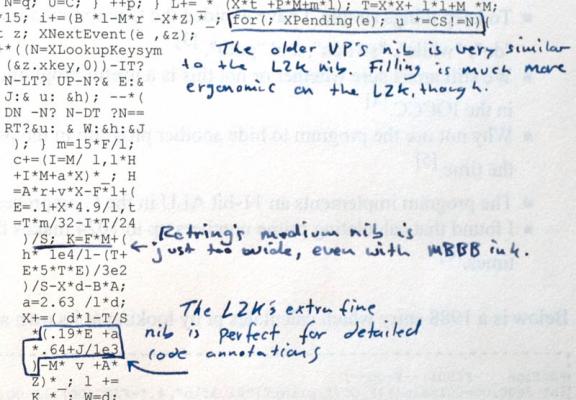 ++p; } ++p; L= * (X*t +P*M+m*l); T=X*X+ l*l+M *M;
15; i+=(B *l-M*r -X*Z)*_; for(; XPending(e); u *=CS!=N){
z; XNextEvent(e ,&z);
*((N=XLookupKeysym
(&z.xkey,0))-IT?
N-LT? UP-N?& E:&
J:& u: &h); --*(
DN -N? N-DT ?N==
RT?&u: & W:&h:&J
); } m=15*F/l;
c+=(I=M/ l,1*H
+I*M+a*X)*_; H
=A*r+v*X-F*l+(
E=.1+X*4.9/l,t
=T*m/32-I*T/24
)/S; K=F*M+(
h* 1e4/l-(T+
E*5*T*E)/3e2
)/S-X*d-B*A;
a=2.63 /l*d;
X+=( d*l-T/S
*(.19*E +a
*.64+J/1e3
)-M* v +A*
Z)*_; l +=
K *_; W=d;
The older VP's nib is very similar
to the L2k nib. Filling is much more
ergonomic on the L2k, though.
in the IOCCC
Why not use the program to hide another
the time.[5]
The program implements an 11-bit ALU in the
I found that
Rotring's medium nib is
just too wide, even with MBBB ink.
Below is a 1988
The L2k's extra fine
nib is perfect for detailed
code annotations